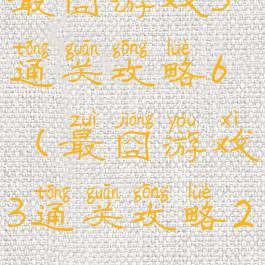 最囧游戏3
tōng guān gōng luè
通关攻略6
zuì jiǒng yóu xì
(最囧游戏
tōng guān gōng luè
3通关攻略2